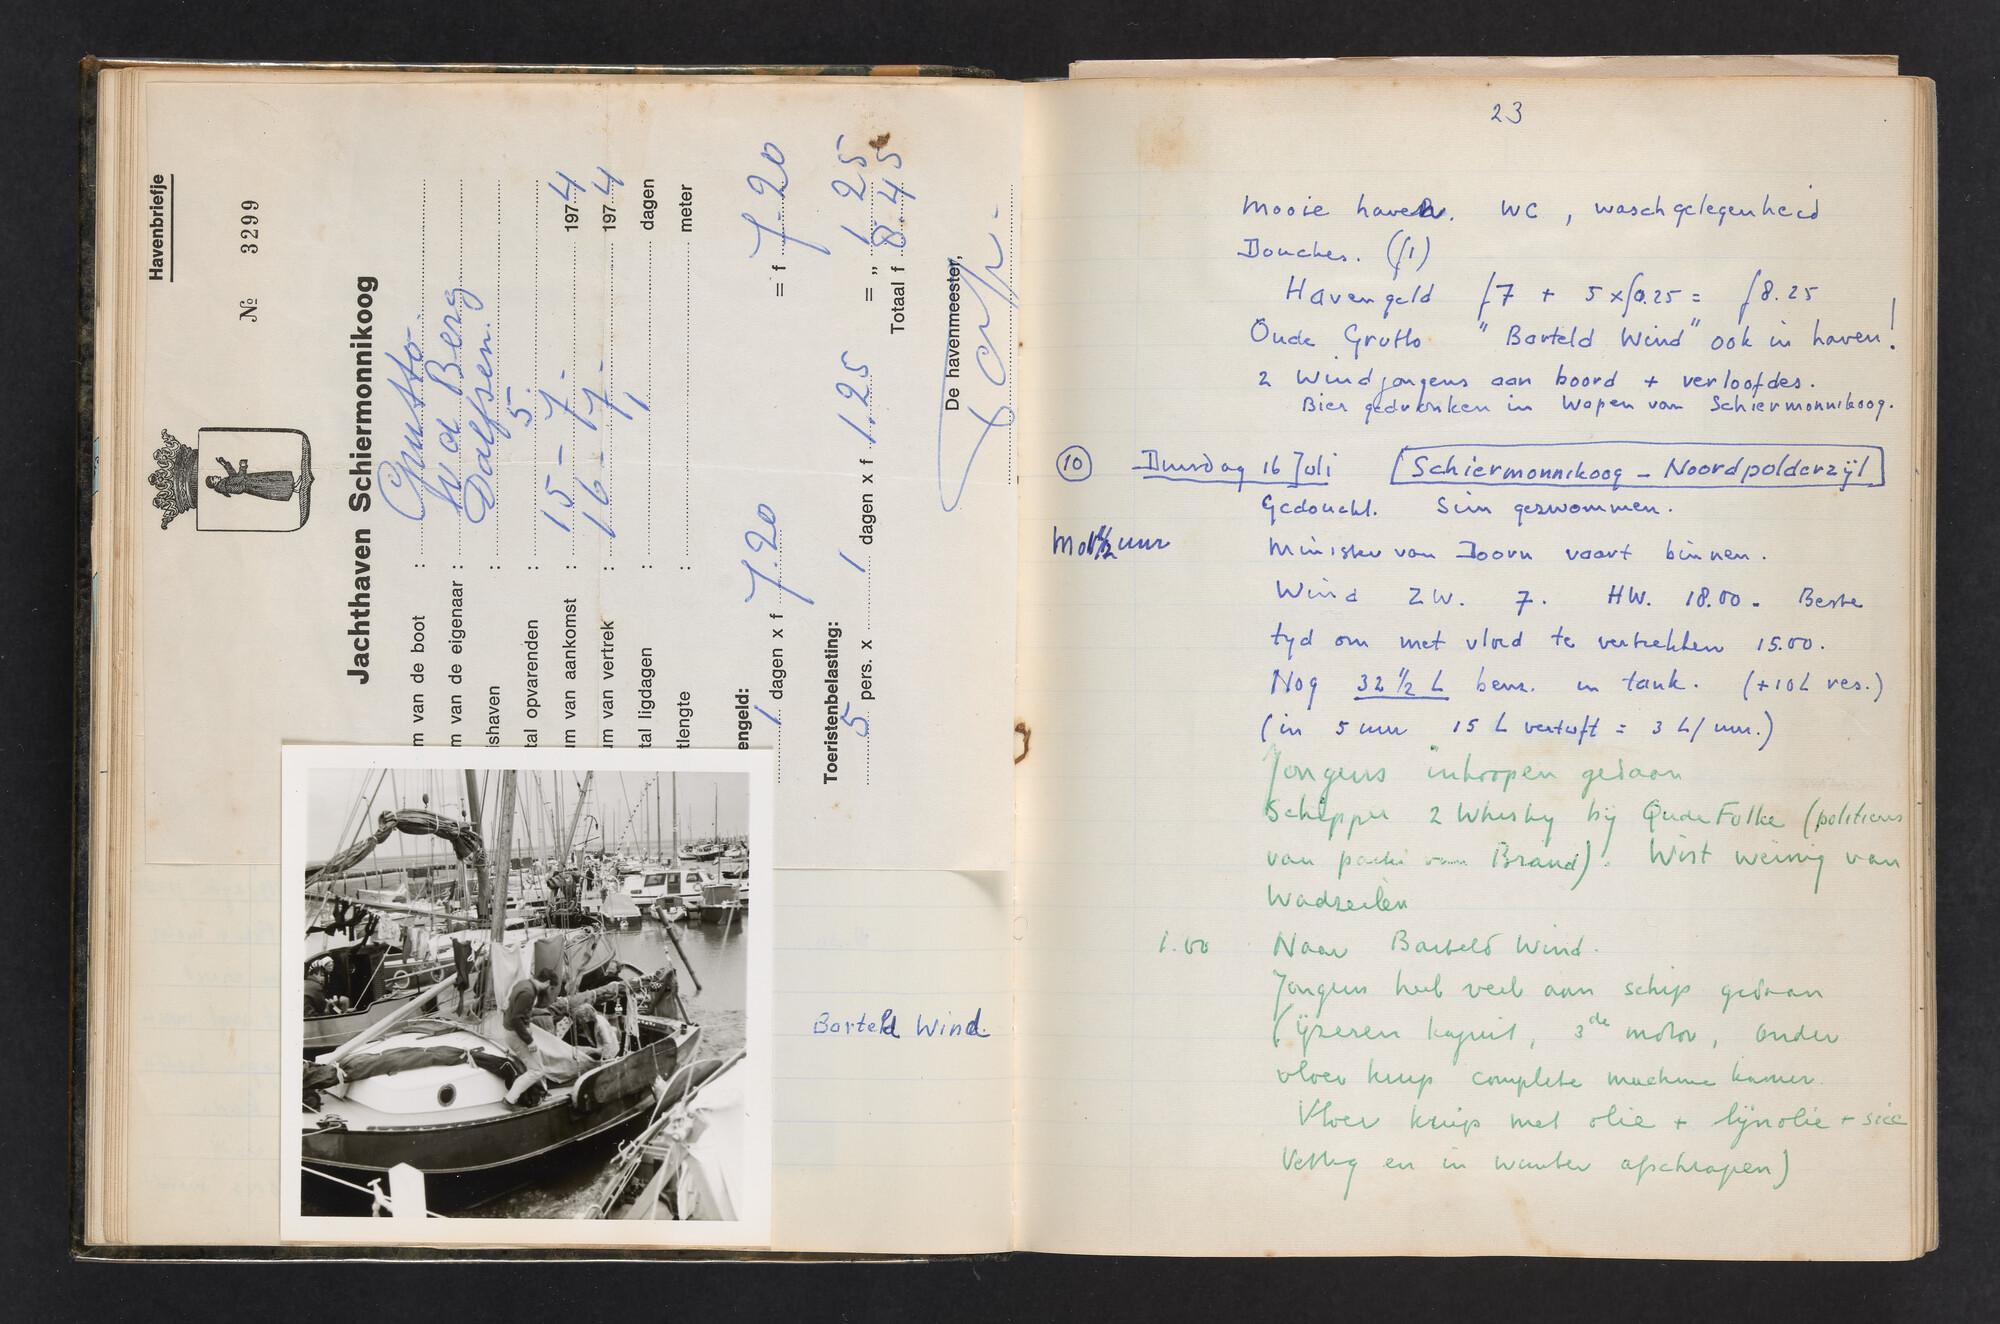 Havenbriefje
№ 3299
Jachthaven Schiermonnikoog
m van de boot : Grutto.
m van de eigenaar : v d Berg
lshaven : Dalfsen.
tal opvarenden : 5.
um van aankomst : 15 - 7 - 1974
um van vertrek : 16 - 7 - 1974
tal ligdagen : 1 dagen
tlengte : meter
engeld:
1 dagen x f 7.20 = f 7.20
Toeristenbelasting:
5 pers. x 1 dagen x f 1.25 = „ 1.25
Totaal f 8.45
De havenmeester,
Barteld Wind.
23
Mooie haven. WC, waschgelegenheid
Douches. (f1)
Havengeld f7 + 5xf0.25 = f8.25
Oude Grutto "Barteld Wind" ook in haven!
2 Windjongens aan boord + verloofdes.
Bier gedronken in Wapen van Schiermonnikoog.
10 Dinsdag 16 Juli Schiermonnikoog - Noordpolderzijl
Gedoucht. Siem gezwommen.
Mot 1½ uur Minister van Doorn vaart binnen.
Wind ZW. 7. HW. 18.00. Beste
tyd om met vloed te vertrekken 15.00.
Nog 32½ L benz. in tank. (+10L res.)
(in 5 uur 15 L vertuft = 3 L/uur.)
Jongens inkopen gedaan
Schipper 2 Whisky bij Oude Folke (politicus
van Brand). Wist weinig van
Wadzeilen
1.00 Naar Barteld Wind.
Jongens heel veel aan schip gedaan
(ijzeren kajuit, 3de motor, onder
vloer kuip complete machine kamer.
Vloer kuip met olie + lijnolie + sicc
Vettig en in winter afschrapen)